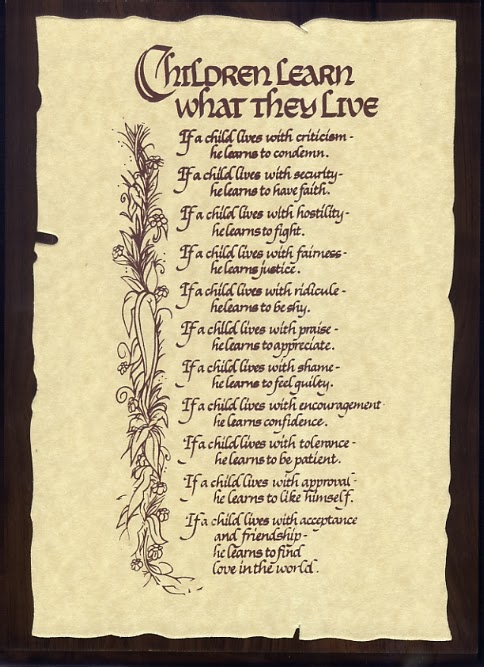 Children Learn
What They Live
If a child lives with criticism-
he learns to condemn.
If a child lives with security-
he learns to have faith.
If a child lives with hostility-
he learns to fight.
If a child lives with fairness-
he learns justice.
If a child lives with ridicule-
he learns to be shy.
If a child lives with praise-
he learns to appreciate.
If a child lives with shame-
he learns to feel guilty.
If a child lives with encouragement-
he learns confidence.
If a child lives with tolerance-
he learns to be patient.
If a child lives with approval-
he learns to like himself.
If a child lives with acceptance
and friendship-
he learns to find
love in the world.